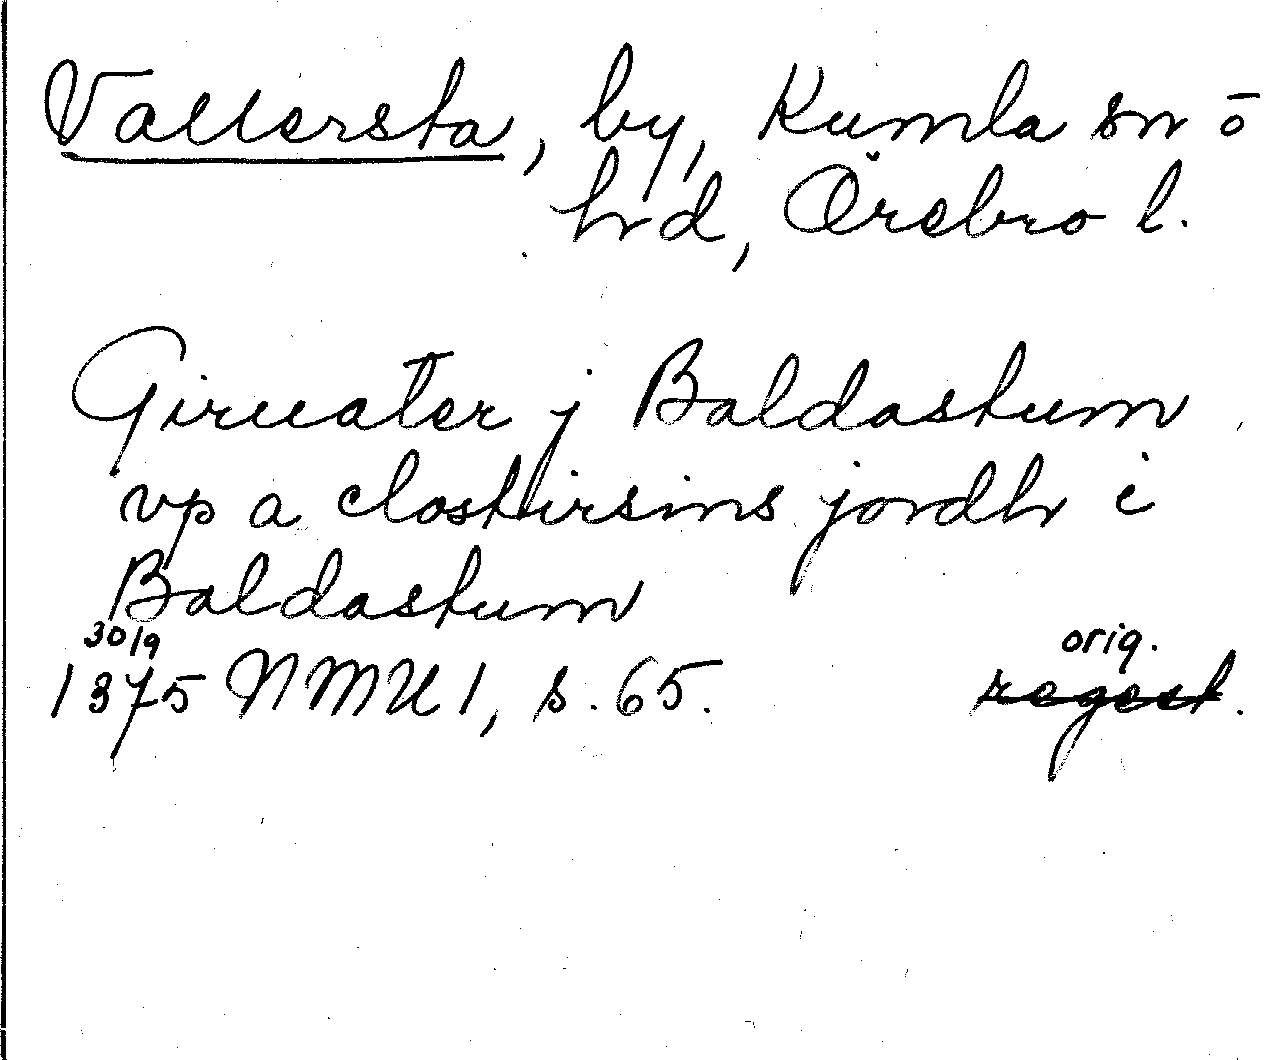 Vallersta, by, Kumla sn o
hd, Örebro l.
Giruater j Baldastum
vp a clostirsins jordh i
Baldastum
30/9
1375 NMU 1, s. 65. orig.
regest.